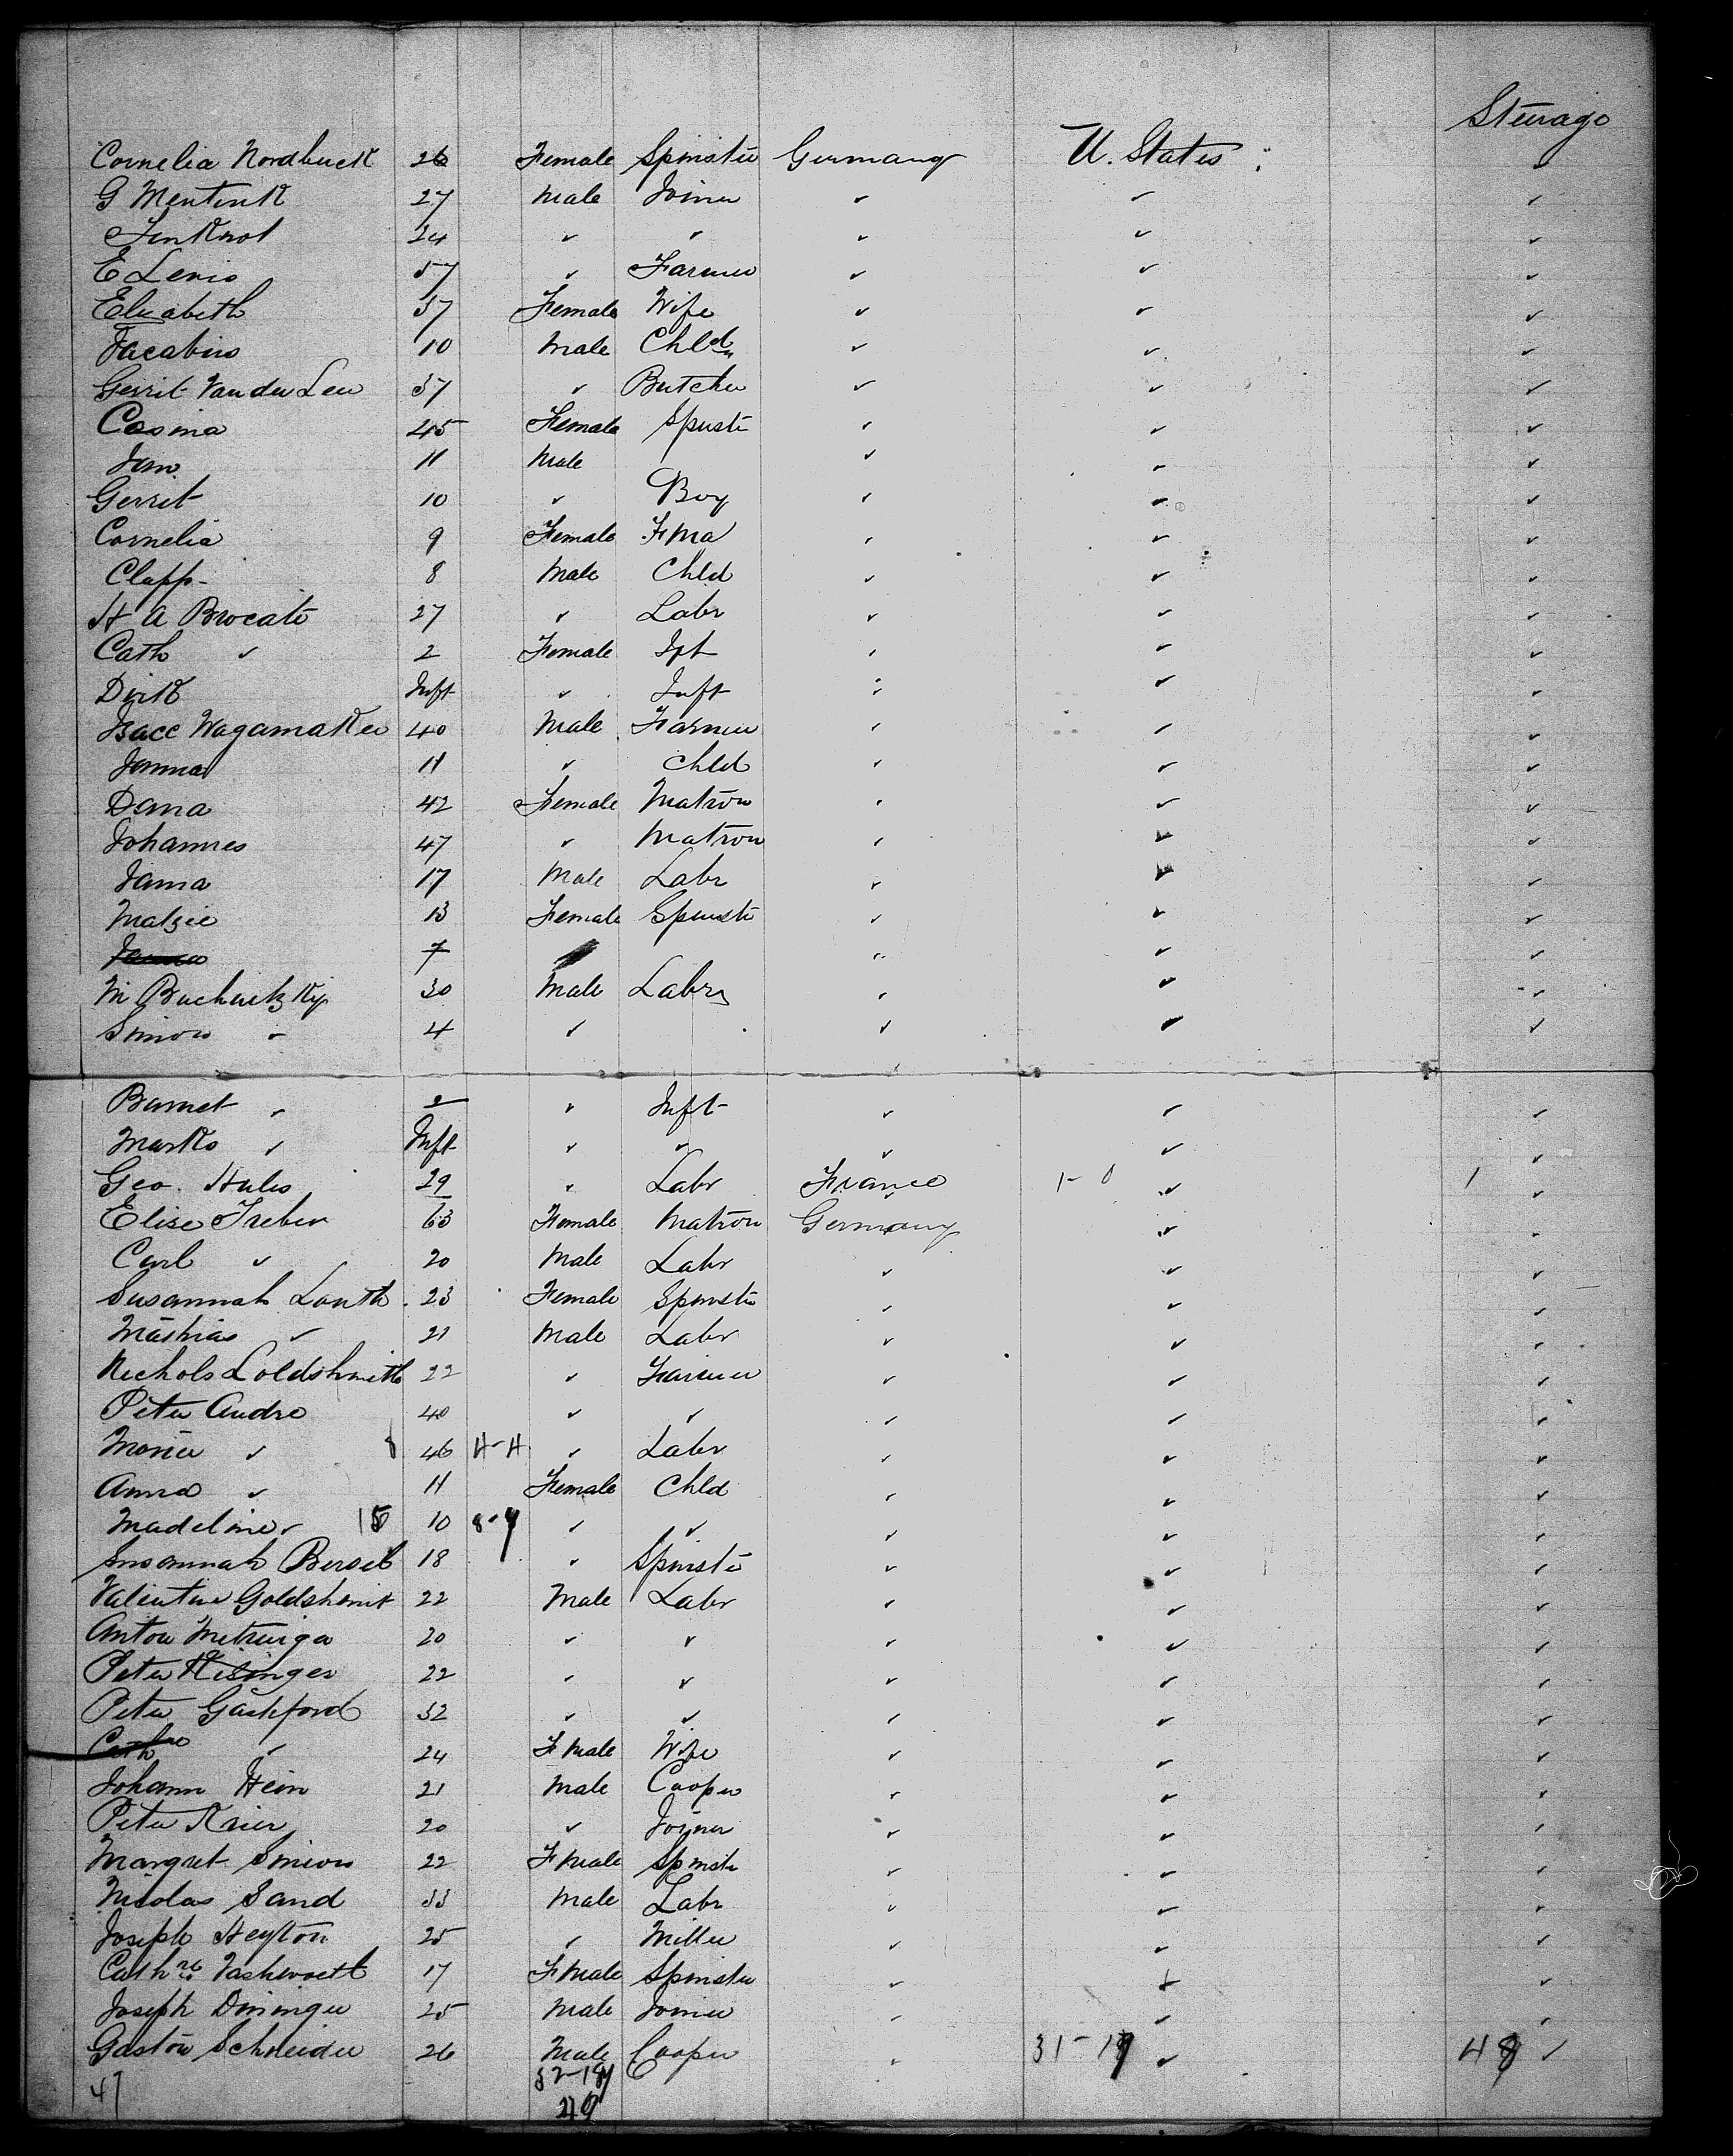 Steerage
Cornelia Nordbuck 26 Female Spinster Germany U. States
G Mentink 27 Male Joiner ✓ ✓ ✓
24 ✓ ✓ ✓ ✓ ✓
E Lenis 57 ✓ Farmer ✓ ✓ ✓
Elizabeth 57 Female Wife ✓ ✓ ✓
Jacabius 10 Male Chldn ✓ ✓ ✓
Gerrit Vander Leu 37 ✓ Butcher ✓ ✓ ✓
Casina 45 Female Spinstr ✓ ✓ ✓
Jan 11 Male ✓ ✓ ✓
Gerrit 10 ✓ Boy ✓ ✓ ✓
Cornelia 9 Female F Ma ✓ ✓ ✓
Clapp 8 Male Chld ✓ ✓ ✓
H A Brocate 27 ✓ Labr ✓ ✓ ✓
Cath ✓ 2 Female ✓ ✓ ✓
Dirk Inft ✓ Inft ✓ ✓ ✓
Isacc Wagamaker 40 Male Farmer ✓ ✓ ✓
Janna 11 ✓ Chld ✓ ✓ ✓
Dana 42 Female Matron ✓ ✓ ✓
Johannes 47 ✓ Matron ✓ ✓ ✓
Jama 17 Male Labr ✓ ✓ ✓
Matzie 13 Female Spinstr ✓ ✓ ✓
7 ✓ ✓ ✓
M 30 Male Labr ✓ ✓ ✓
Simon ✓ 4 ✓ ✓ ✓ ✓
Barnet ✓ 2 ✓ Inft ✓ ✓ ✓
Marks ✓ Inft ✓ ✓ ✓ ✓ ✓
Geo. Hules 29 ✓ Labr France 1-0 ✓ 1 ✓
Elise Treber 63 Female Matron Germany ✓ ✓
Carl ✓ 20 Male Labr ✓ ✓ ✓
Susannah Lauth 23 Female Spinstr ✓ ✓ ✓
Mathias ✓ 21 Male Labr ✓ ✓ ✓
Nichols Loldshmith 22 ✓ Farmer ✓ ✓ ✓
Peter Andre 40 ✓ ✓ ✓ ✓ ✓
Maria ✓ 8 46 H-H ✓ Labr ✓ ✓ ✓
Anna ✓ 11 Female Chld ✓ ✓ ✓
Madeline ✓ 15 10 8-4 ✓ ✓ ✓ ✓ ✓
Susannah Bersil 18 ✓ Spinstr ✓ ✓ ✓
Valentine Goldshmit 22 Male Labr ✓ ✓ ✓
Anton Metzinga 20 ✓ ✓ ✓ ✓ ✓
Peter Kisinger 22 ✓ ✓ ✓ ✓ ✓
Peter Gashford 32 ✓ ✓ ✓ ✓ ✓
Cathne ✓ 24 F Male Wife ✓ ✓ ✓
Johann Hein 21 Male Cooper ✓ ✓ ✓
Peter Krier 20 ✓ Joiner ✓ ✓ ✓
Margret Simon 22 F Male Spinstr ✓ ✓ ✓
Nicolas Sand 33 Male Labr ✓ ✓ ✓
Joseph Heyton 25 ✓ Miller ✓ ✓ ✓
Cathne 17 F Male Spinster ✓ ✓ ✓
Joseph Dininger 25 Male Joiner ✓ ✓ ✓
Gaston Schneider 26 Male Cooper ✓ 31-17 ✓ 48 ✓
47 32-17
49